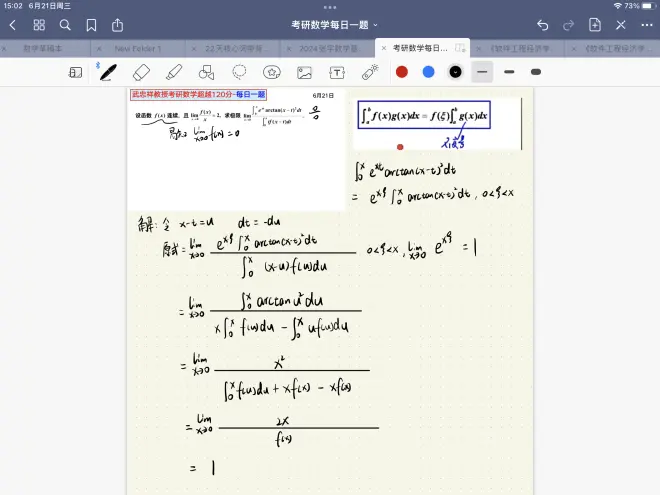 15:02 6月21日周三
73%
考研数学每日一题
数学草稿本
New Folder 1
考研数学每日...
《软件工程经济学...
《软件工程经济学...
武忠祥教授考研数学超越120分-每日一题
6月21日
设函数 f(x) 连续，且 lim x→0 f(x)/x = 2，求极限 lim x→0 ∫₀ˣ eˣᵗ arctan(x−t)²dt / ∫₀ˣ tf(x−t)dt . 0/0
lim x→0 f(x) = 0
∫ₐᵇ f(x)g(x)dx = f(ξ)∫ₐᵇ g(x)dx
∫₀ˣ eˣᵗ arctan(x-t)²dt
= eˣᶓ ∫₀ˣ arctan(x-t)²dt , 0<ξ<x
解：令 x-t=u dt=-du
原式= lim x→0 eˣᶓ ∫₀ˣ arctan(x-t)²dt / ∫₀ˣ (x-u)f(u)du 0<ξ<x, lim x→0 eˣᶓ = 1
= lim x→0 ∫₀ˣ arctan u² du / x∫₀ˣ f(u)du - ∫₀ˣ uf(u)du
= lim x→0 x² / ∫₀ˣ f(u)du + xf(x) - xf(x)
= lim x→0 2x / f(x)
= 1